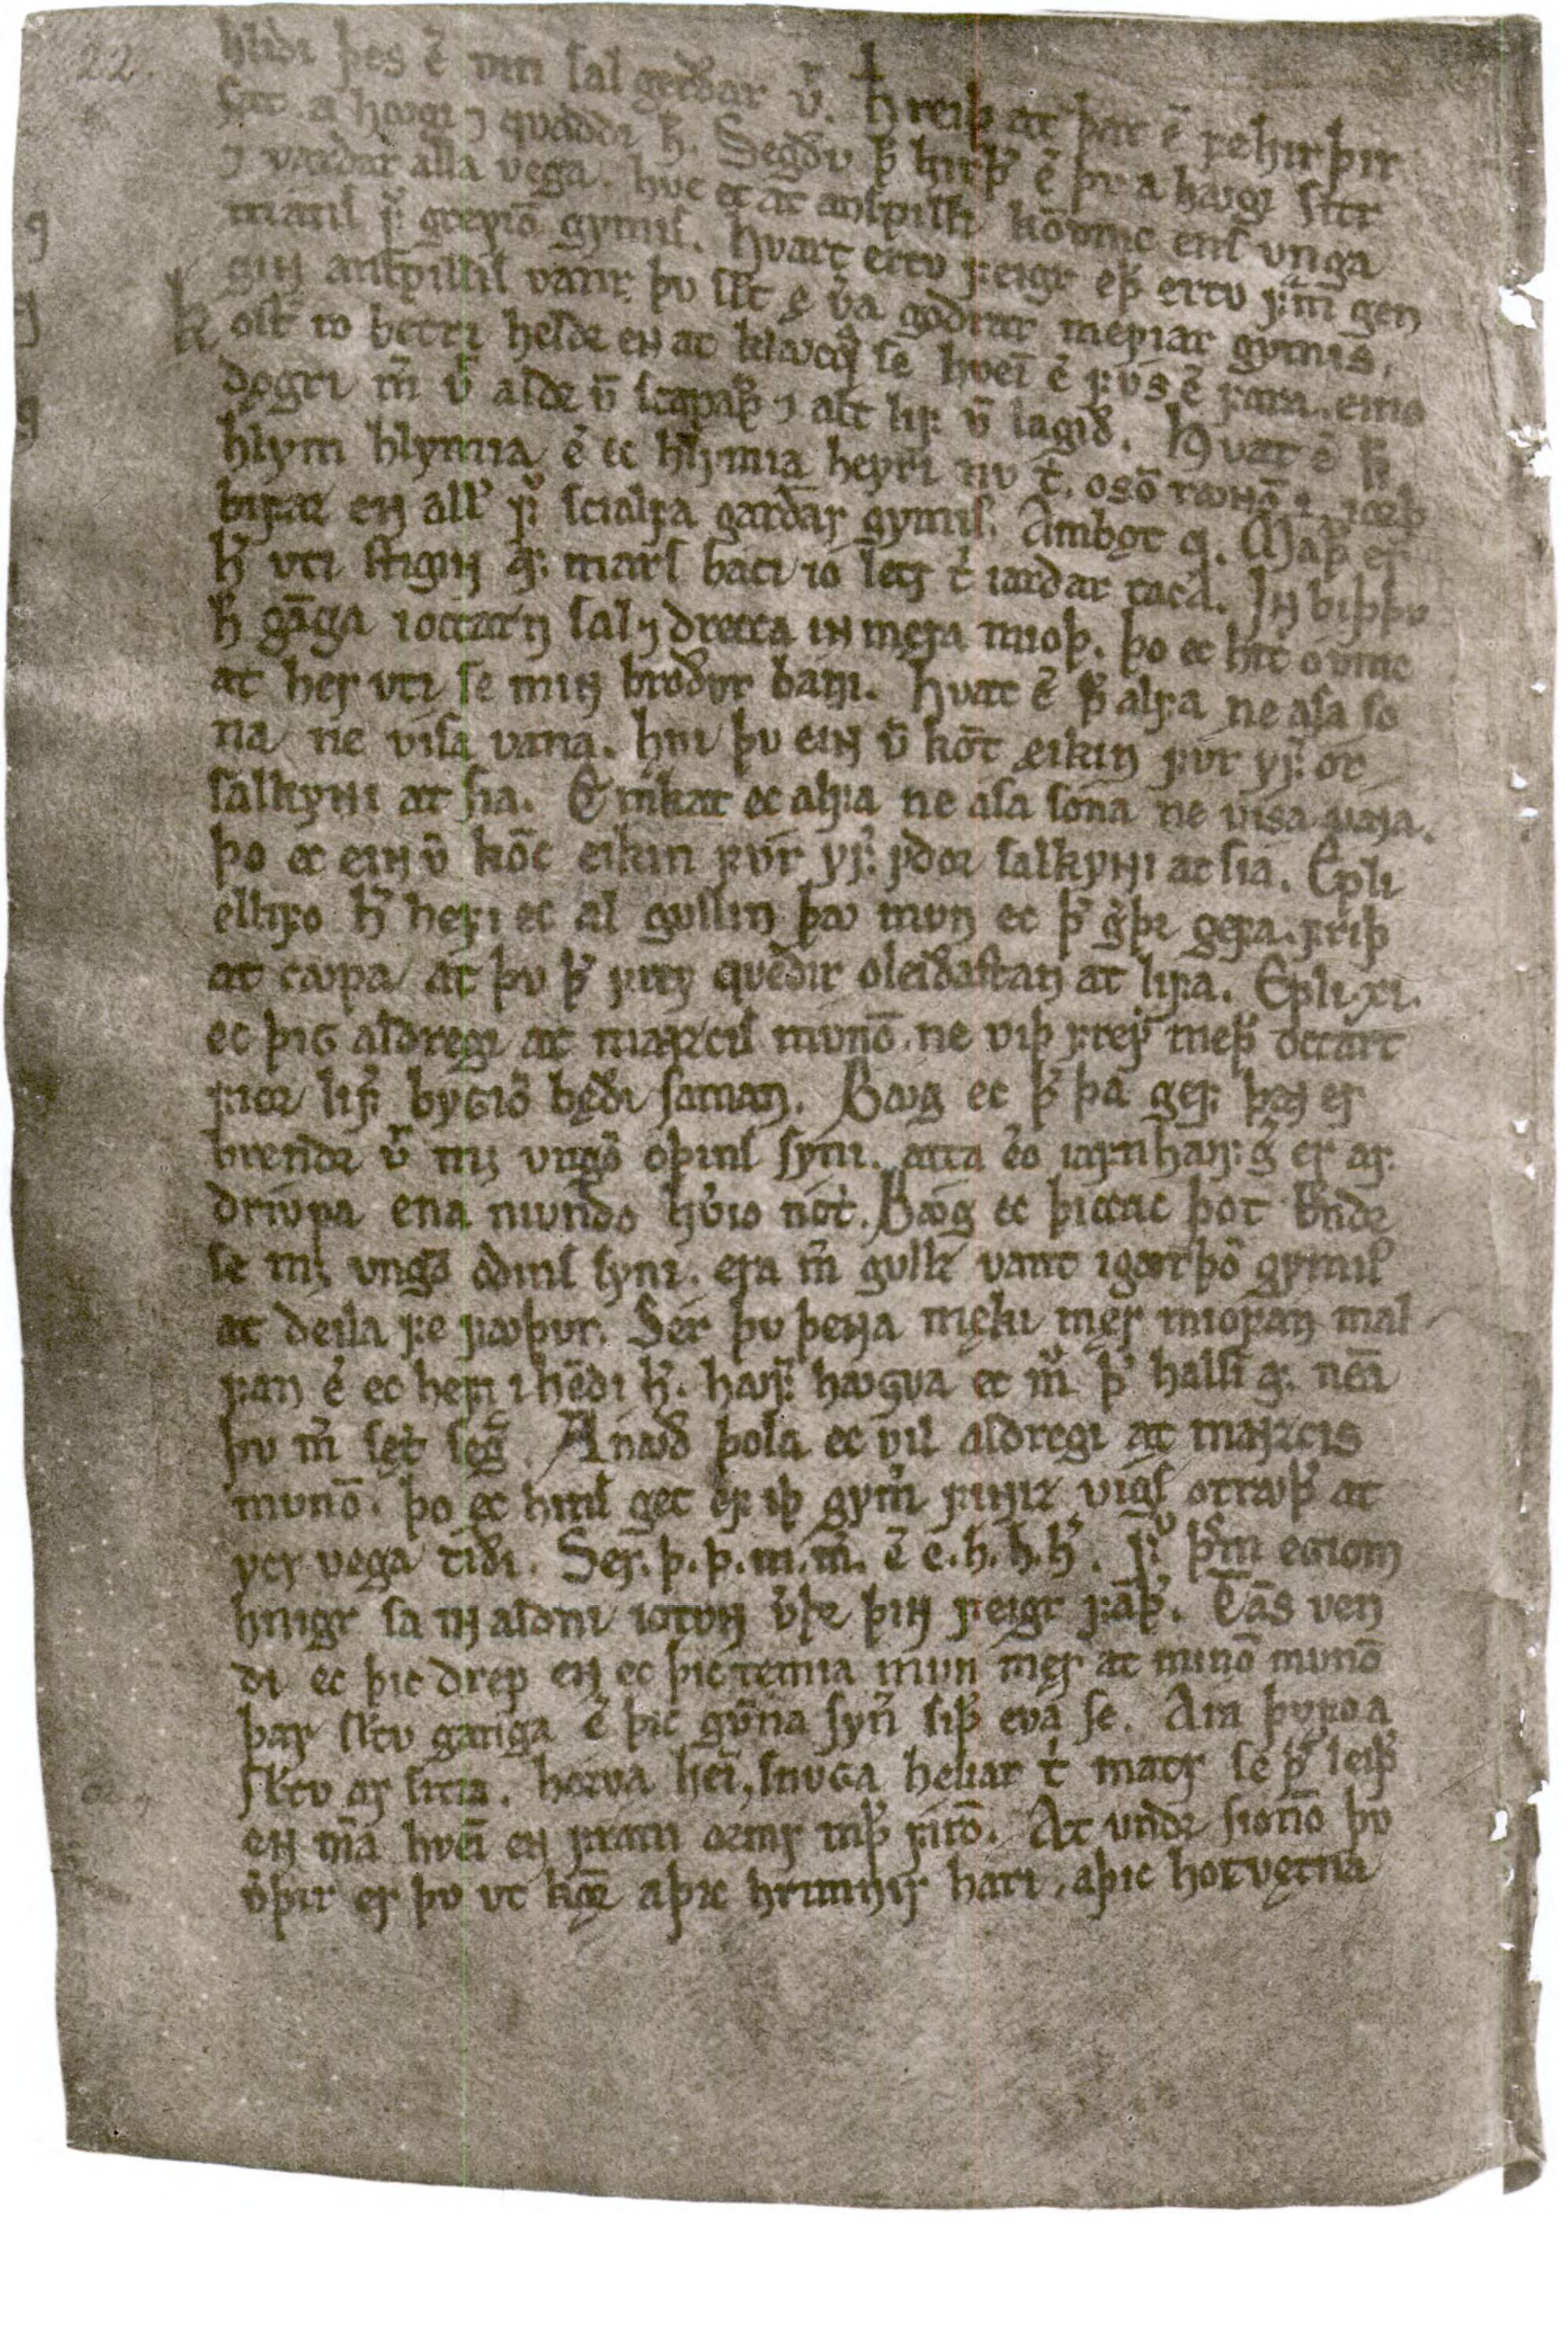 22.
hliði þes ē vm ſal gerðar v̄. h̄ reiþ at þar ē fehirþir
ſat a hꜹgi ⁊ qvaddi h̄. Segðv þ̄ hirþ̓ ē þv a hꜹgi ſitr
⁊ varðar alla vega. hve ec at anſpilli kōvmc enſ vnga
manſ f̓ greyiō gymiſ. Hvart ertv feigr eþ̓ ertv fm̄ gen
gin anſpilliſ vanr þv ſc̄t ę v̓a goðrar meyiar gymis.
Koſt̓ ro betri heldr en at kløcq̓ ſe hveī ē fvs ē fara. eino
dǫgri m̄ v̄ aldr v̄ ſcapaþ̓ ⁊ alt lif v̄ lagið. Hvat ē þ̄
hlym hlymia ē ec hlymia heyri nv t̓. osō rꜹnnō i. iorþ
bifaz en all̓ f̓ ſcialfa garðar gymiſ. Ambǫt q. Maþ̓ er
h̓ vti ſtigin af marſ baci io letr t̓ iarðar taca. In biþþv
h̄ gāga i occarn ſal ⁊ drecca in męra mioþ. þo ec hit ovmc
at her vti ſe min broðvr bani. Hvat ē þ̄ alfa ne aſa ſo
na ne viſa vana. hvi þv ein v̄ kōt eikin fvr yf̓ or
ſalkynni at ſia. Emkat ec alfa ne aſa ſona ne viſa vana.
þo ec ein v̄ kōc eikin fvr yf̓ yðor ſalkynni at ſia. Epli
ellifo h̓ hefi ec al gullin þꜹ mvn ec þ̓ g̓þr gefa. friþ
at cꜹpa at þv þ̓ frey qveðir oleiðaſtan at lifa. Epli .xi.
ec þigg aldregi at mannzciſ mvnō. ne viþ freyr meþ̓ occart
fior lif̓ bygiō bęði ſaman. Bꜹg ec þ̓ þa gef þan er
brendr v̄ m; vngō oþinſ ſyni. atta ero iafnhaf̓ g̓ er af
drivpa ena nivndo hv̓io nót. Bꜹg ec þiccac þot brendr
ſe m; vngō oðinſ ſyni. era m̄ gullz vant i gorþō gymiſ
at deila fe fꜹþvr. Sér þv þena męki męr miofan mal
fan ē ec hefi i hēdi h̄. hꜹf̓ hꜹgva ec m̄ þ̓ halſi af nēa
þv m̄ ſętt ſegir. Anꜹð þola ec vil aldregi at mannzcis
mvnō. þo ec hinſ get ef iþ gym̄ finniz vigſ otrꜹþ̓ at
ycr vega tiði. Ser. þ. þ. m. m̄. ē e. h. h. h̓. f̓ þm̄ egiom
hnigr ſa in aldni iotvn v̓þr þin feigr faþ̓. Tāſ ven
di ec þic drep en ec þic temia mvn męr at minō mvnō
þar ſc̄tv ganga ē þic gvmna ſyn̄ ſiþ̓ eva ſe. Ara þvfo a
ſc̄tv ar ſitia. horva heī, ſnvgga heliar t̓ matr ſe þ̓ leiþ̓
en m̄a hveī en frani ormr mþ̓ firō. At vndr ſionō þv
v̓þir er þv vt kōr aþic hrimnir hari, aþic hotvętna